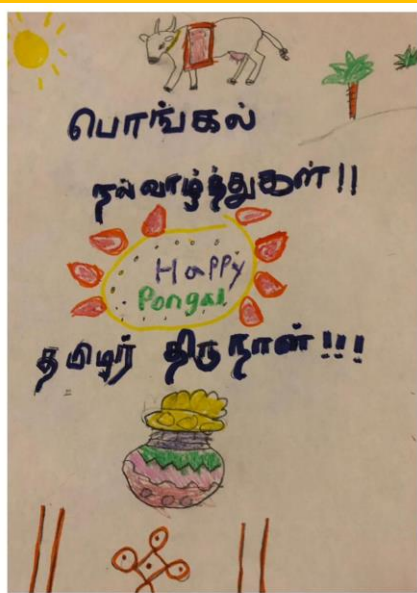 பொங்கல்
நல்வாழ்த்துகள்!!
Happy
Pongal
தமிழர் திருநாள்!!!